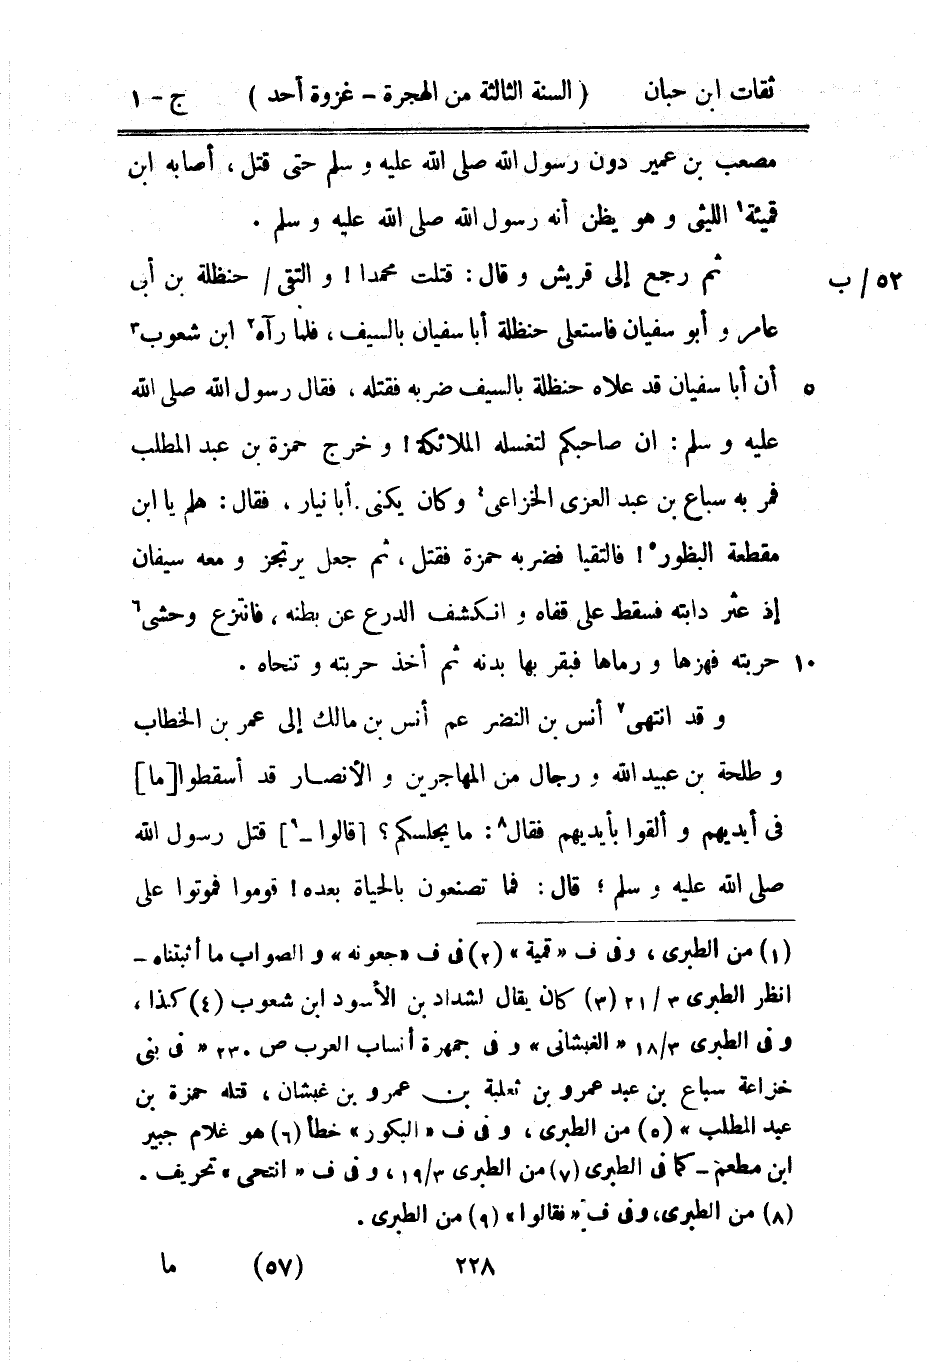 ثقات ابن حبان ( السنة الثالثة من الهجرة – غزوة أحد ) ج – ١
مصعب بن عمير دون رسول الله صلى الله عليه و سلم حتى قتل ، أصابه ابن
قميئة١ الليثى و هو يظن أنه رسول الله صلى الله عليه و سلم .
ثم رجع إلى قريش و قال : قتلت محمدا ! و التقى / حنظلة بن أبى ٥٢ / ب
عامر و أبو سفيان فاستعلى حنظلة أبا سفيان بالسيف ، فلما رآه٢ ابن شعوب٣
أن أبا سفيان قد علاه حنظلة بالسيف ضربه فقتله ، فقال رسول الله صلى الله ٥
عليه و سلم : ان صاحبكم لتغسله الملائكة ! و خرج حمزة بن عبد المطلب
فمر به سباع بن عبد العزى الخزاعى٤ وكان يكنى أبا نيار ، فقال : هلم يا ابن
مقطعة البظور٥ ! فالتقيا فضربه حمزة فقتل ، ثم جعل يرتجز و معه سيفان
إذ عثر دابته فسقط على قفاه و انكشف الدرع عن بطنه ، فانتزع وحشى٦
حربته فهزها و رماها فبقر بها بدنه ثم أخذ حربته و تنحاه . ١٠
و قد انتهى٧ أنس بن النضر عم أنس بن مالك إلى عمر بن الخطاب
و طلحة بن عبيد الله و رجال من المهاجرين و الأنصار قد أسقطوا [ما]
فى أيديهم و ألقوا بأيديهم فقال٨ : ما يجلسكم ؟ [قالوا ــ٩] قتل رسول الله
صلى الله عليه و سلم ؛ قال : فما تصنعون بالحياة بعده ! قوموا فموتوا على
(١) من الطبرى ، وفى ف « قمية » (٢) فى ف «جعونه» و الصواب ما أثبتناه ــ
انظر الطبرى ٣ / ٢١ (٣) كان يقال لشداد بن الأسود ابن شعوب (٤) كذا ،
و فى الطبرى ٣/ ١٨ « الغبشانى » و فى جمهرة أنساب العرب ص ٢٣٠ « فى بنى
خزاعة سباع بن عبد عمرو بن ثعلبة بن عمرو بن غبشان ، قتله حمزة بن
عبد المطلب » (٥) من الطبرى ، و فى ف « البكور » خطأ (٦) هو غلام جبير
ابن مطعم ــ كما فى الطبرى (٧) من الطبرى ٣/ ١٩ ، و فى ف « انتحى » تحريف .
(٨) من الطبرى، وفى ف « فقالوا » (٩) من الطبرى .
٢٢٨ (٥٧) ما